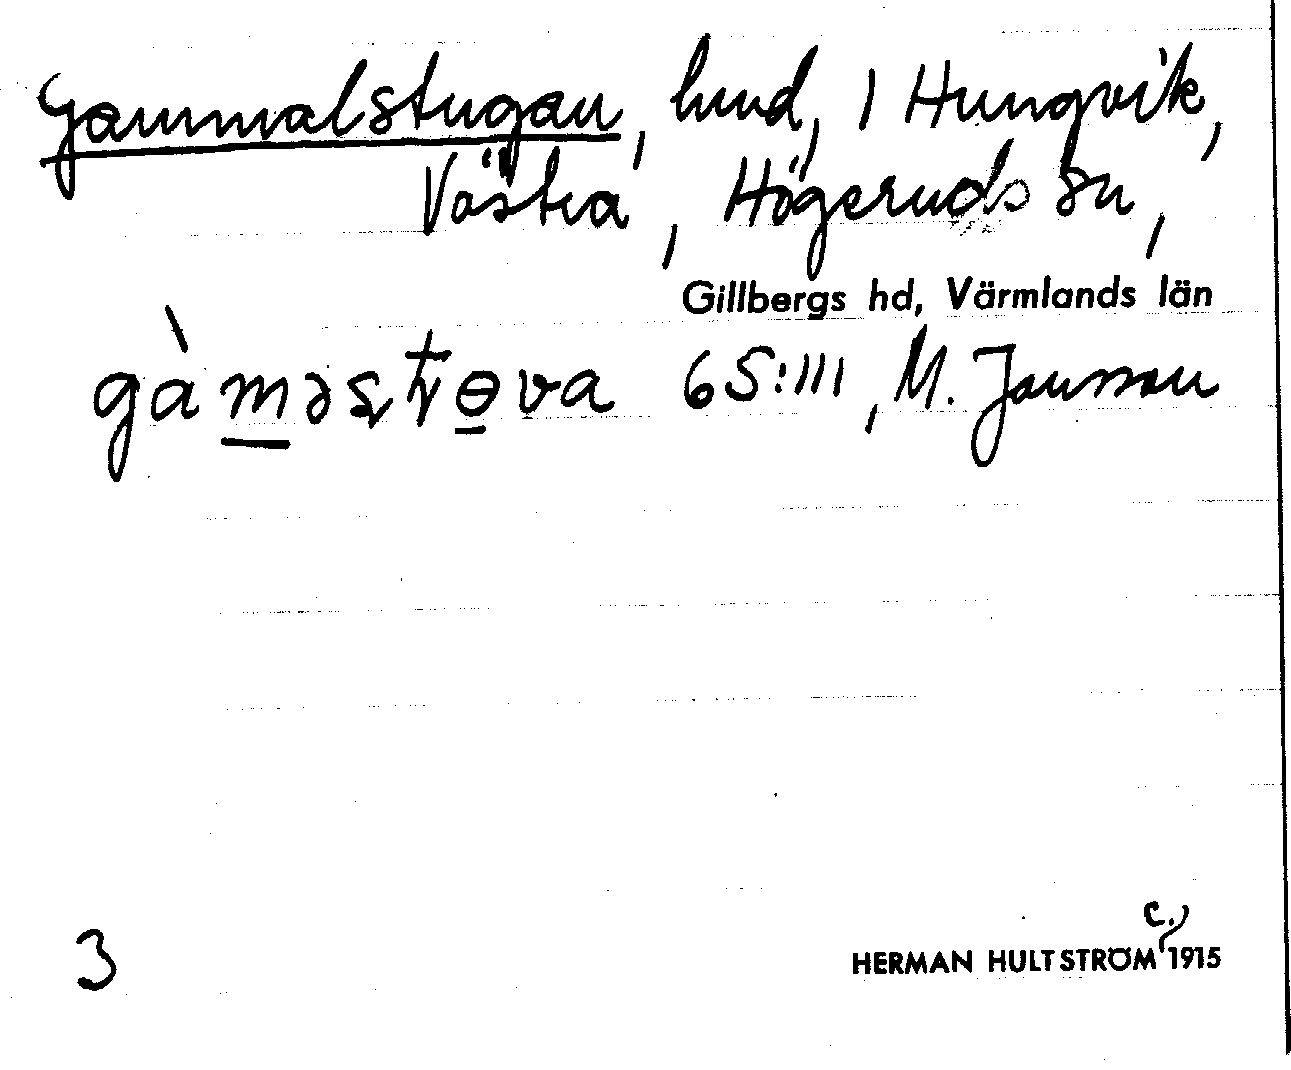 Gammalstugan, lund, 1 Hungvik,
Västra, Högeruds sn,
Gillbergs hd, Värmlands län
gàməstɵva 65:111, M. Jansson
3
c.
HERMAN HULTSTRÖM 1915